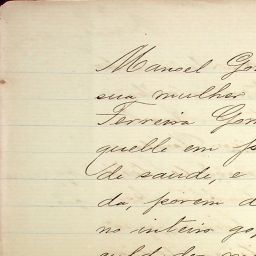 Manoel Go
sua mulher
Ferreira Gom
quelle em
de saude, e
da, porem d
no inteiro go